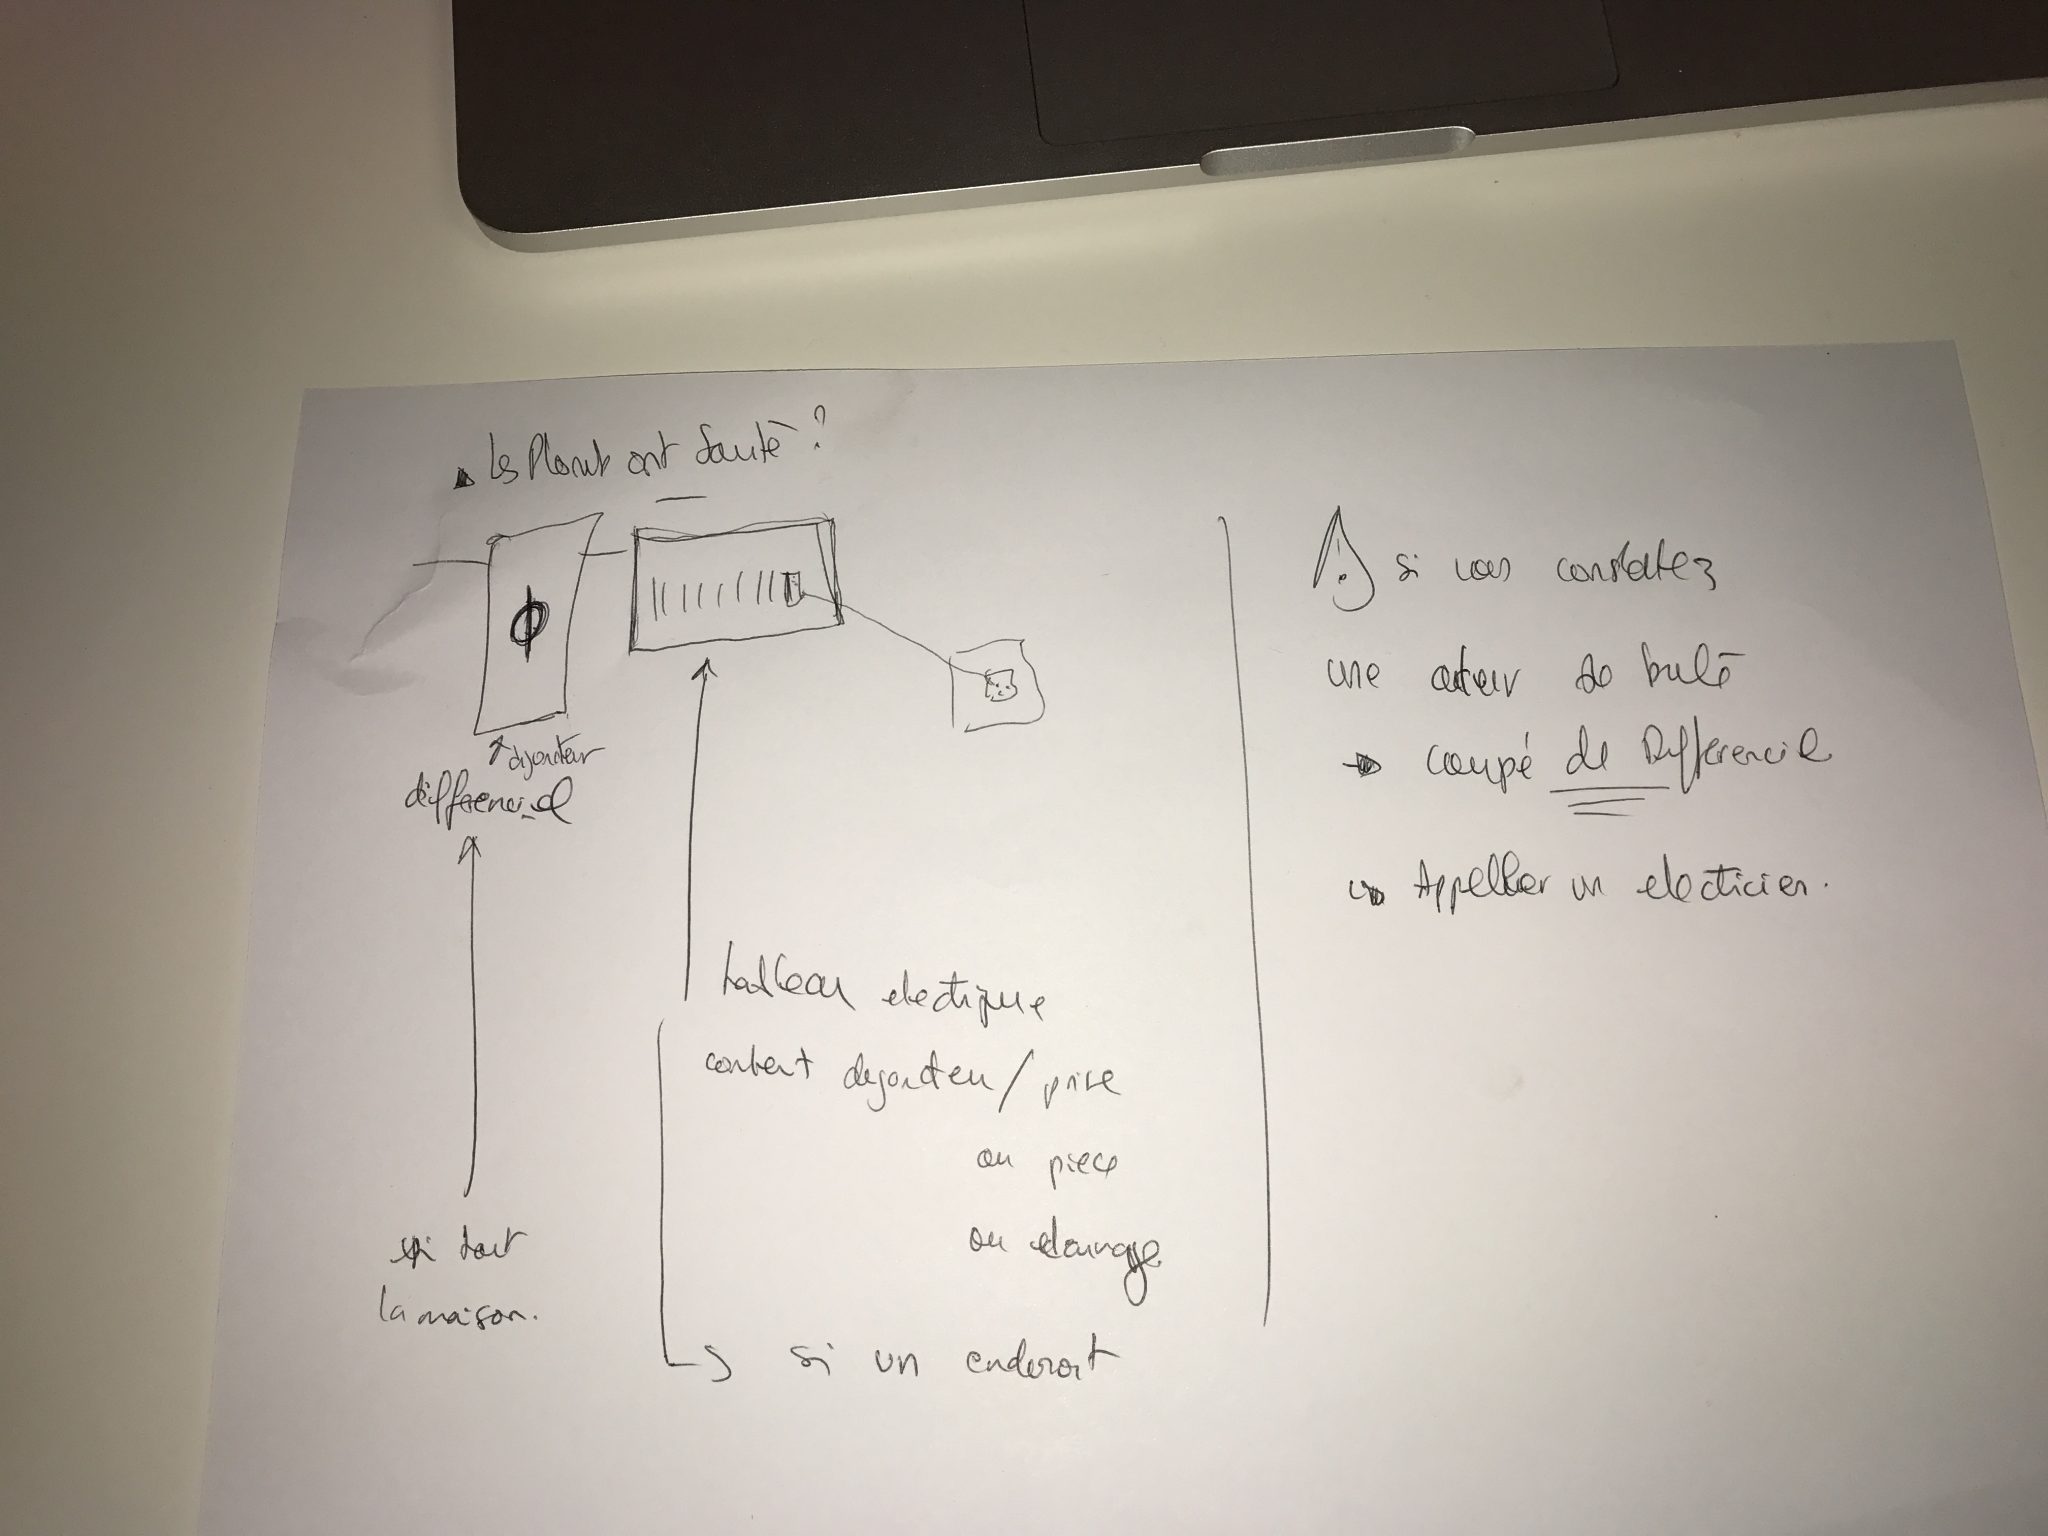 Les Plomt ont Sauté ?
dijoncteur
différenciel
si tout
la maison.
tableau electique
contient dejoncteu / prise
ou piece
ou eclairage
si un enderoit
si vous constatez
une odeur de brulé
coupé de Differenciel
Appeller un electicien.